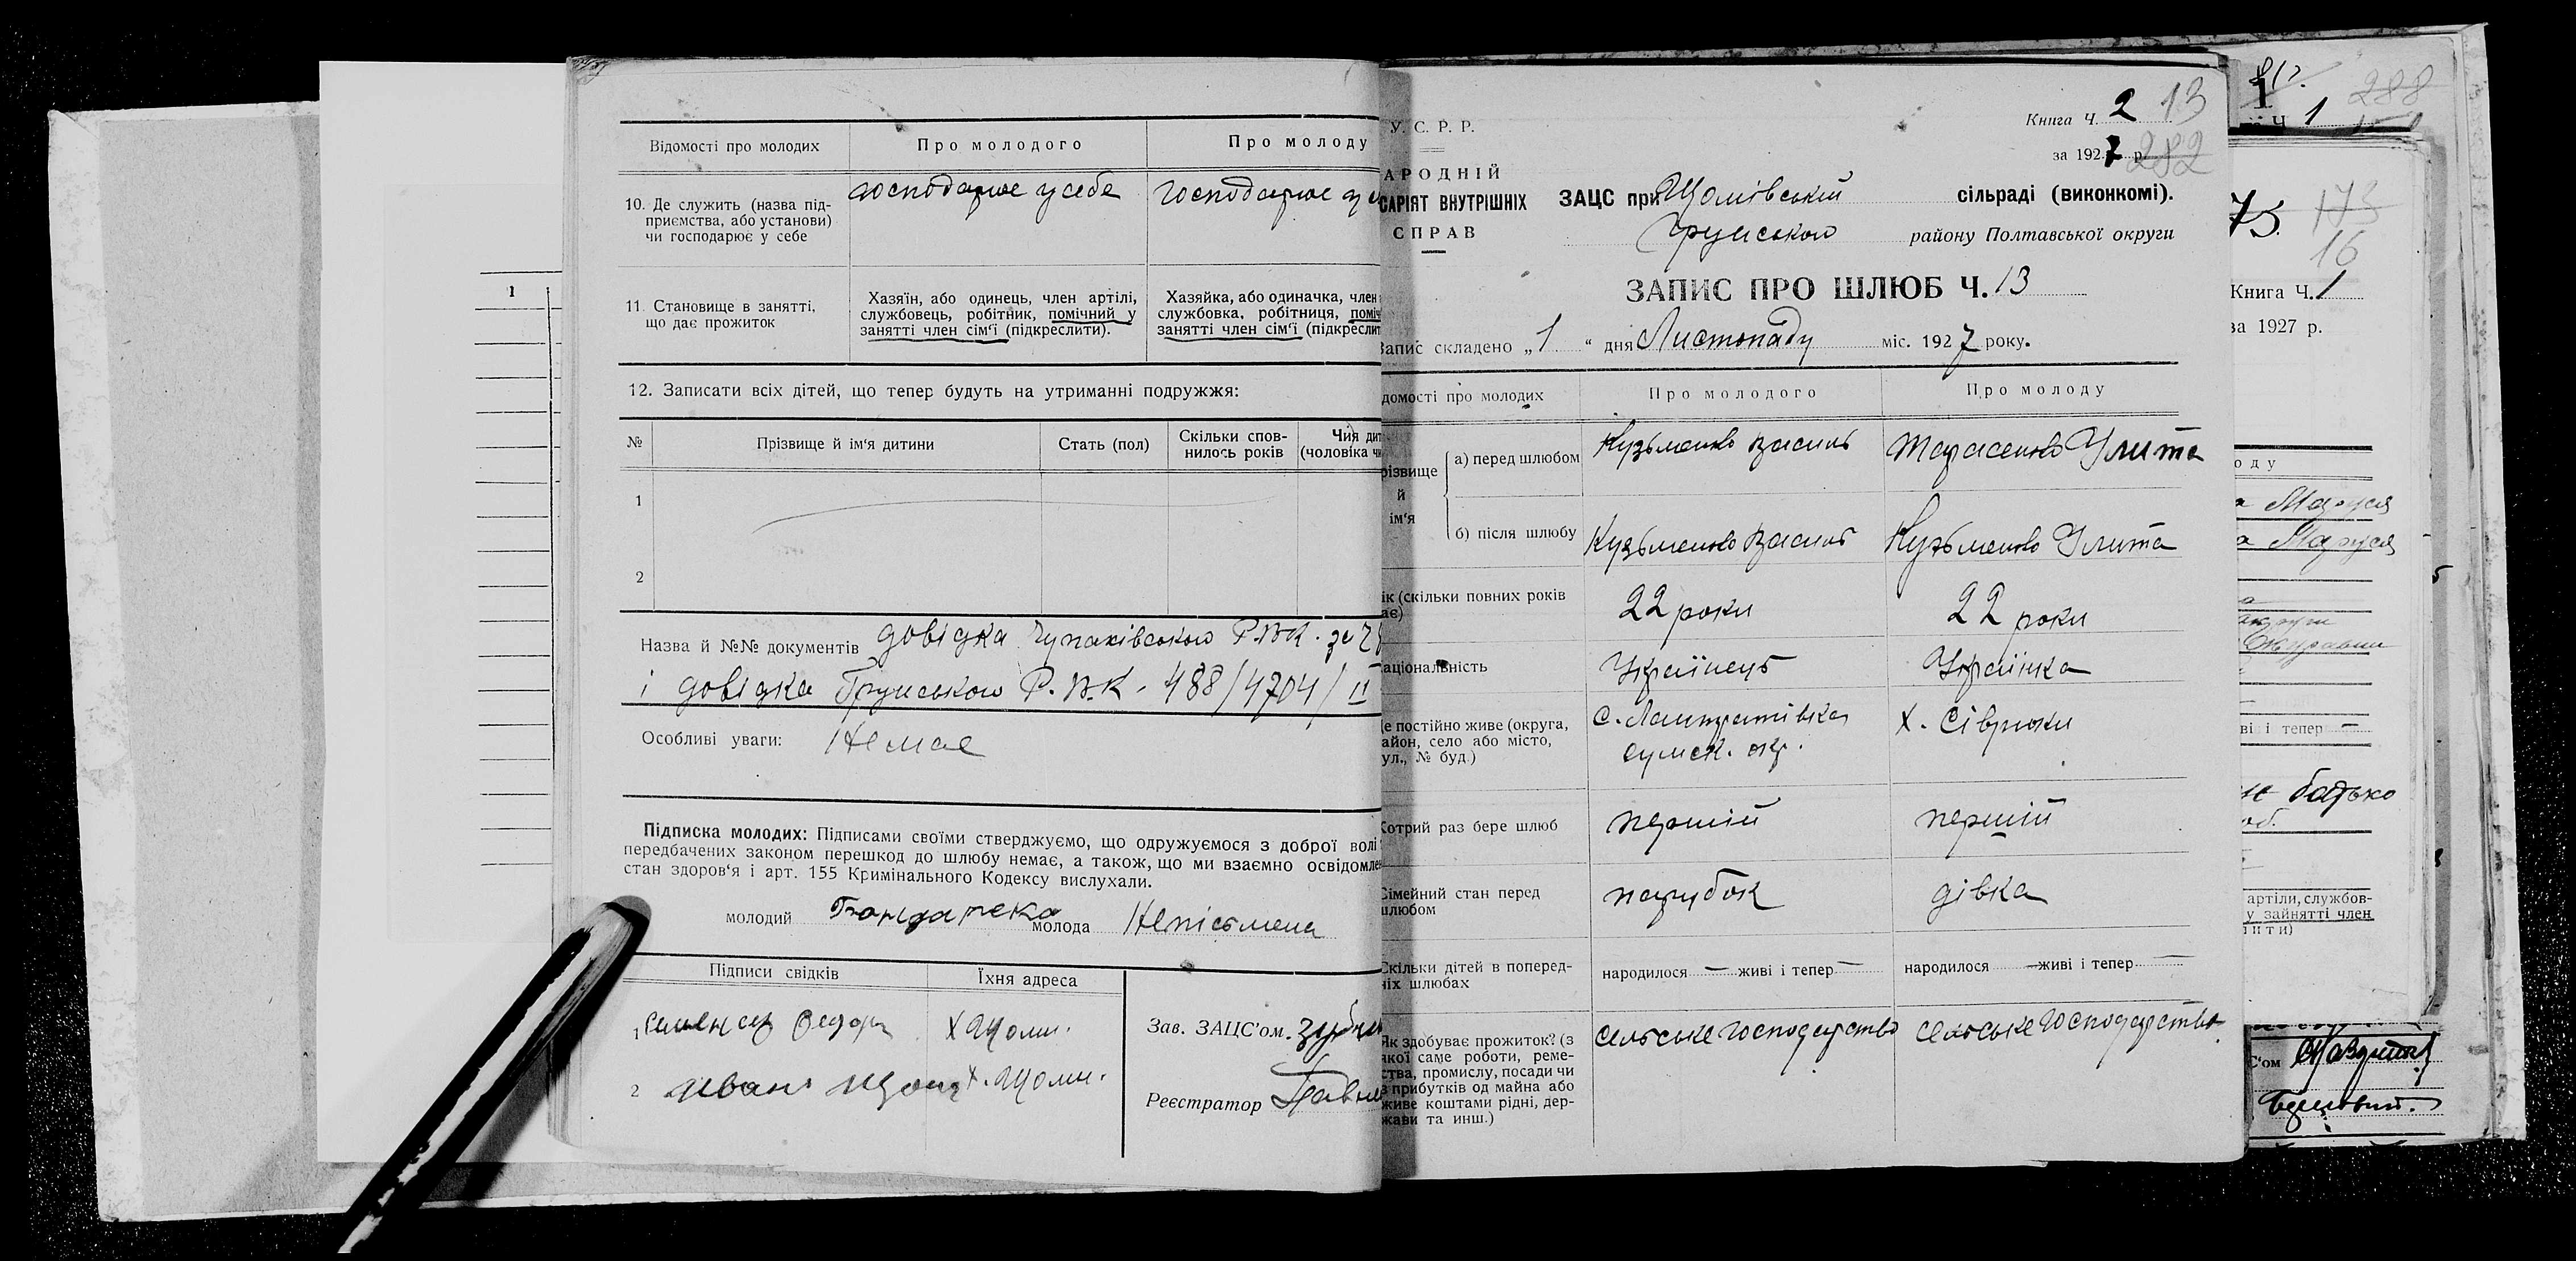 Відомості про молодих
Про молодого
Про молоду
10. Де служить (назва під-
приємства, або установи)
чи господарює у себе
господарює у себе
господарює у
11. Становище в занятті,
що дає прожиток
Хазяїн, або одинець, член артілі,
службовець, робітник, помічний у
занятті член сім'ї (підкреслити).
Хазяйка, або одиначка, член
службовка, робітниця, поміч
занятті член сім'ї (підкреслит
12. Записати всіх дітей, що тепер будуть на утриманні подружжя:
№
Прізвище й ім'я дитини
Стать (пол)
Скільки спов-
нилось років
Чия дит
(чоловіка чи
1
2
Назва й №№ документів довідка Чупахівського Р.В.К.
і довідка Грунського Р.В.К. 488/4704/II
Особливі уваги: Немає
Підписка молодих: Підписами своїми стверджуємо, що одружуємося з доброї волі
передбачених законом перешкод до шлюбу немає, а також, що ми взаємно освідомле
стан здоров'я і арт. 155 Кримінального Кодексу вислухали.
молодий
молода Непісьмена
Підписи свідків
Їхня адреса
1 Федор
2 Иван
Зав. ЗАЦС'ом.
Реєстратор
У. С. Р. Р.
АРОДНІЙ
САРІЯТ ВНУТРІШНІХ
СПРАВ
Книга Ч. 2 13
за 1927 р. 282
ЗАЦС при сільраді (виконкомі).
Грунського району Полтавської округи
ЗАПИС ПРО ШЛЮБ Ч. 13
Запис складено „1" дня Листопаду міс. 1927 року.
домості про молодих
Про молодого
Про молоду
різвище
й
ім'я
а) перед шлюбом
Кузьменко Василь
Тарасенко Улита
б) після шлюбу
Кузьменко Василь
Кузьменко Улита
ік (скільки повних років
ає)
22 роки
22 роки
аціональність
Українець
Українка
е постійно живе (округа,
айон, село або місто,
ул., № буд.)
сумск. окр.
х. Сіврюки
Котрий раз бере шлюб
першій
першій
Сімейний стан перед
шлюбом
парубок
дівка
Скільки дітей в поперед-
ніх шлюбах
народилося — живі і тепер —
народилося — живі і тепер —
Як здобуває прожиток? (з
якої саме роботи, реме-
ства, промислу, посади чи
з прибутків од майна або
живе коштами рідні, дер-
жави та инш.)
сельське господарство
сельське господарство
1
288
Ч 1
75
173
16
Книга Ч. 1
за 1927 р.
оду
а Маруся
а Маруся
ві і тепер —
батько
артіли, службов-
у зайнятті член
ити)
С'ом